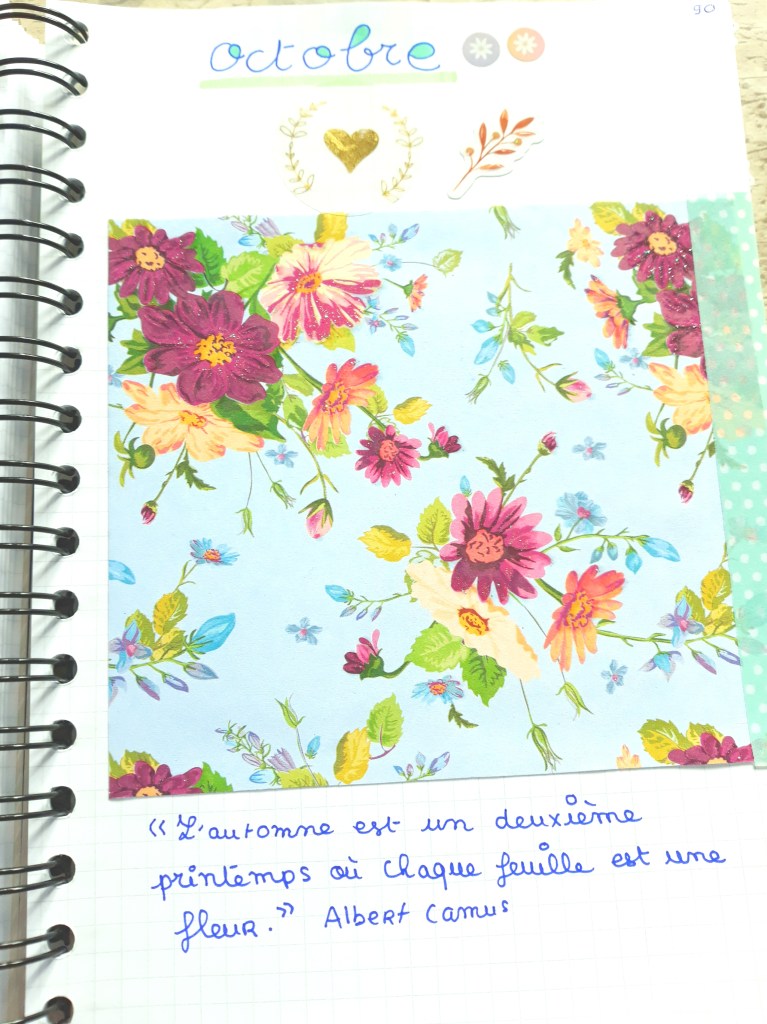 90
octobre
« L'automne est un deuxième
printemps où chaque feuille est une
fleur. » Albert Camus